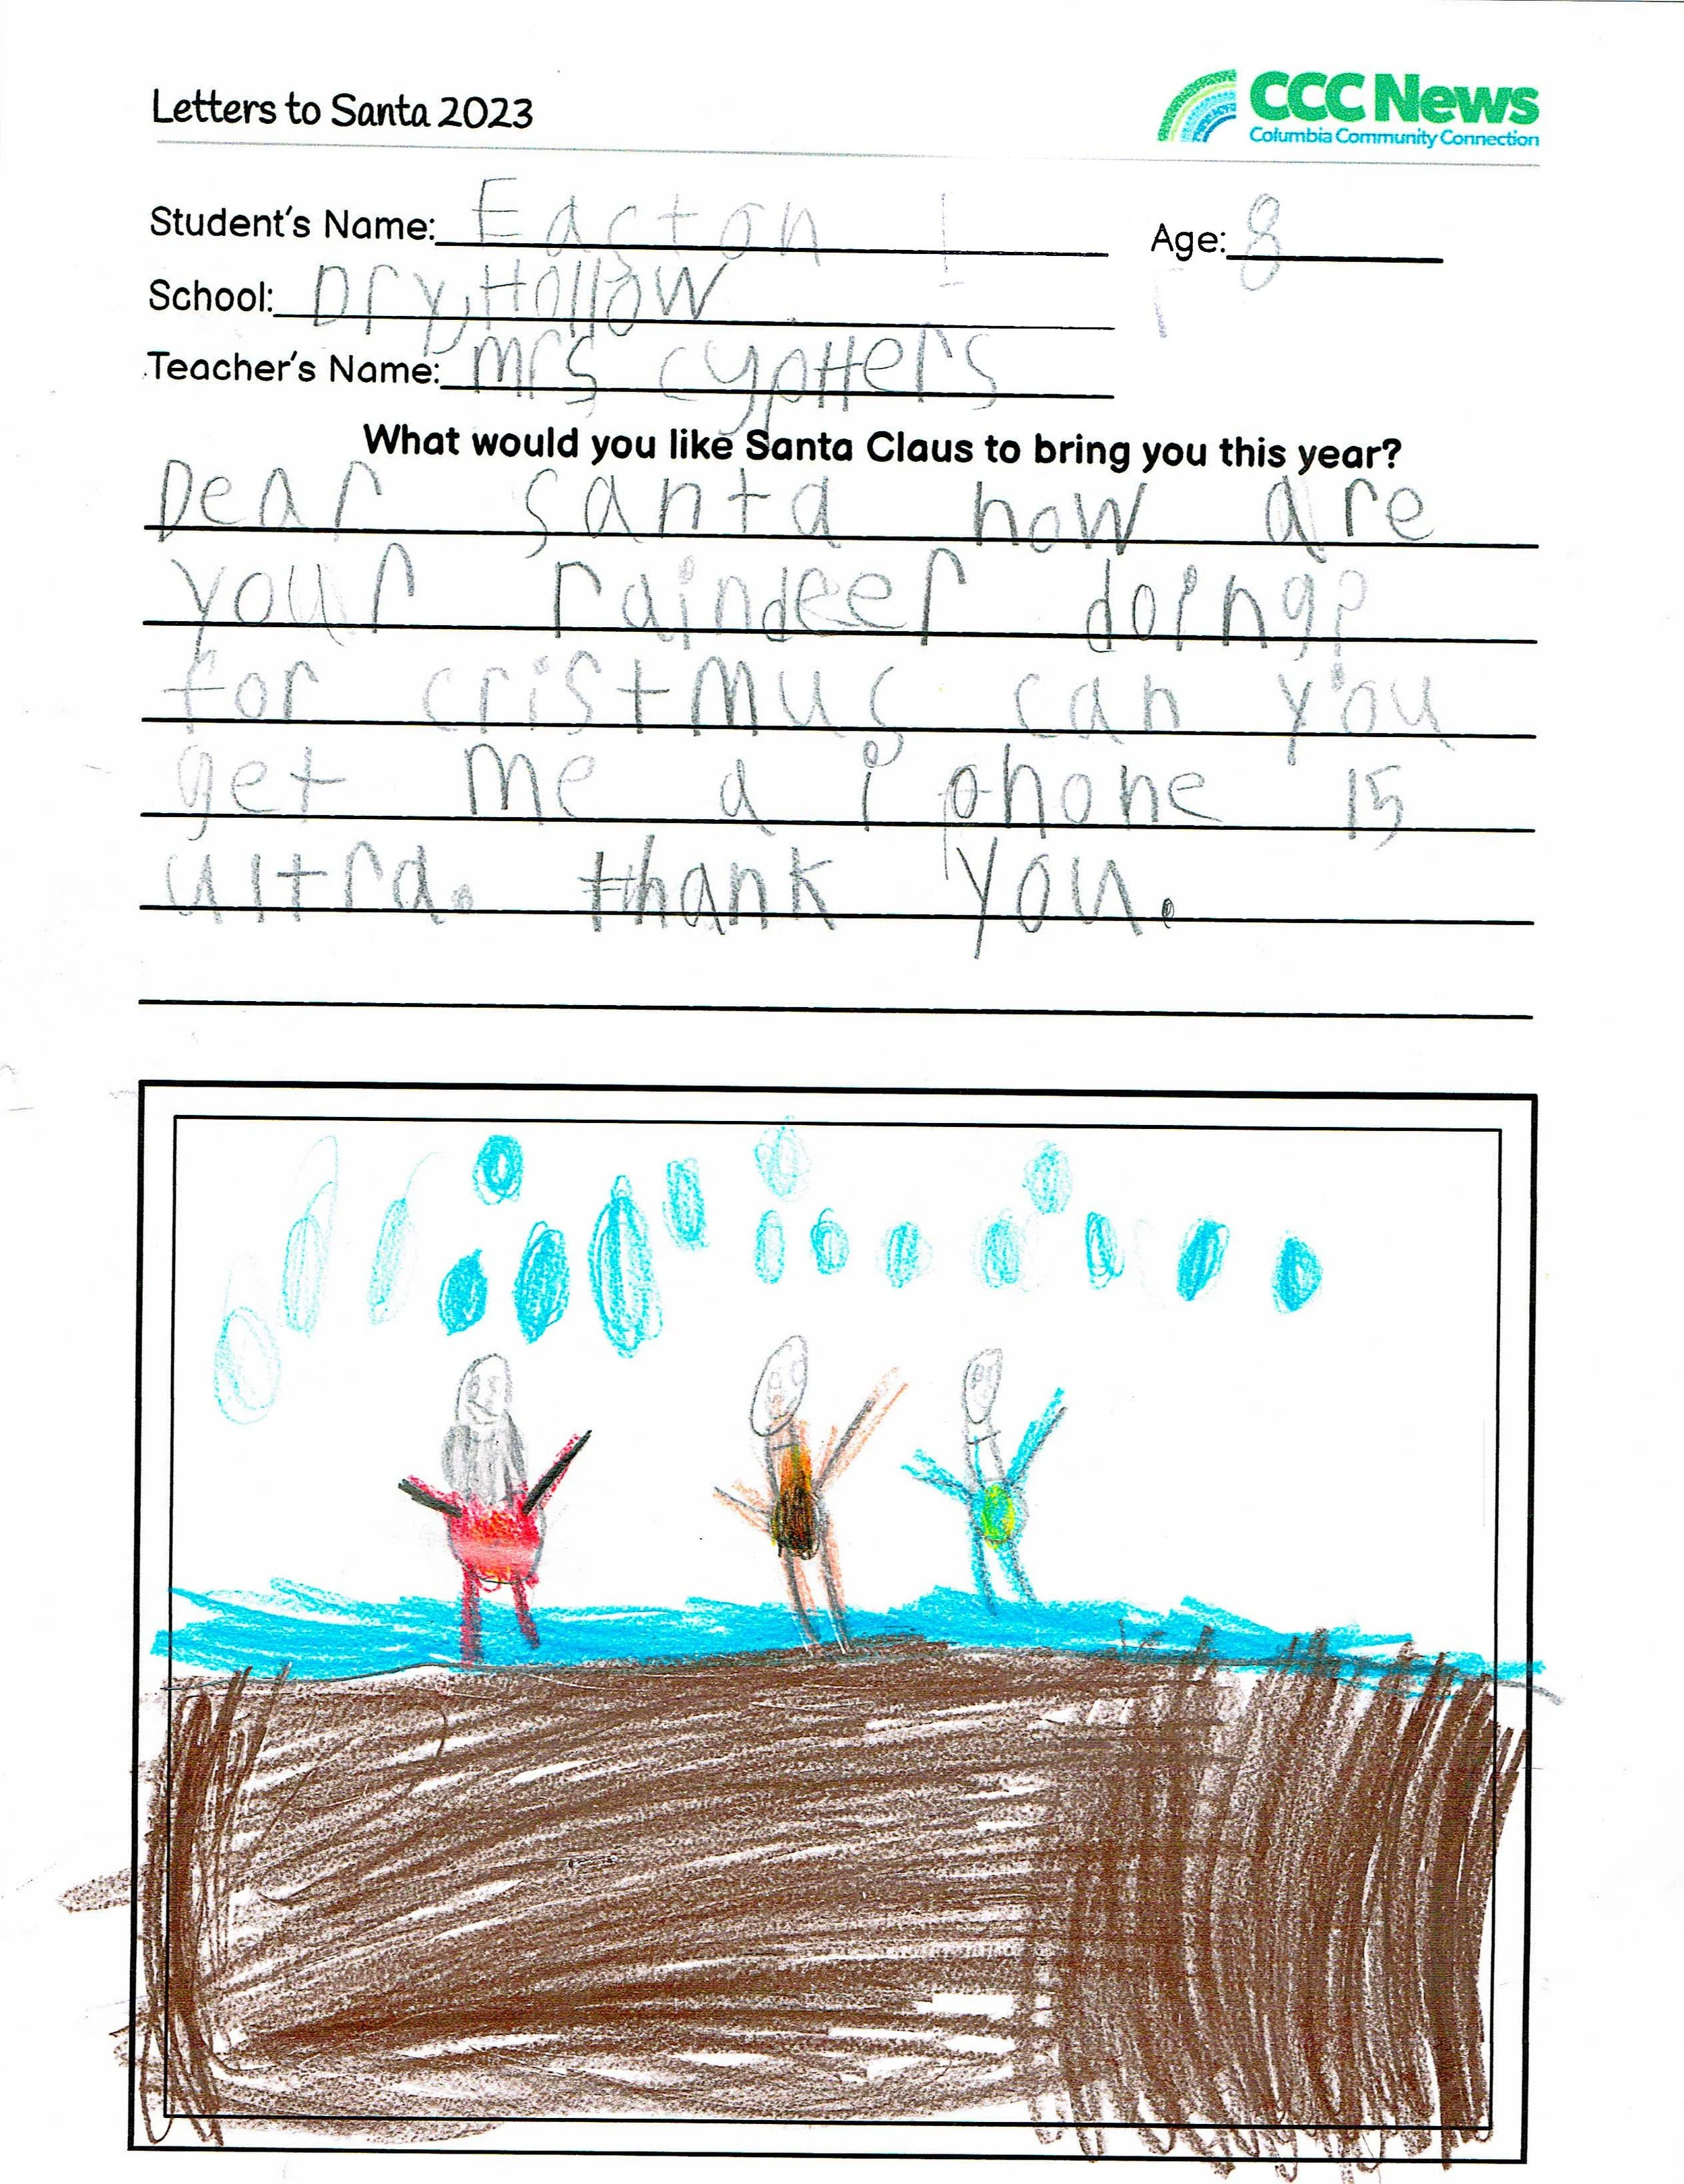 Letters to Santa 2023
CCC News
Columbia Community Connection
Student's Name: Easton
Age: 8
School: Dry, Hollow
Teacher's Name: mrs cypHers
What would you like Santa Claus to bring you this year?
Dear santa how are
your raindeer doing?
for cristmus can you
get me a i phone 15
ultra. thank you.